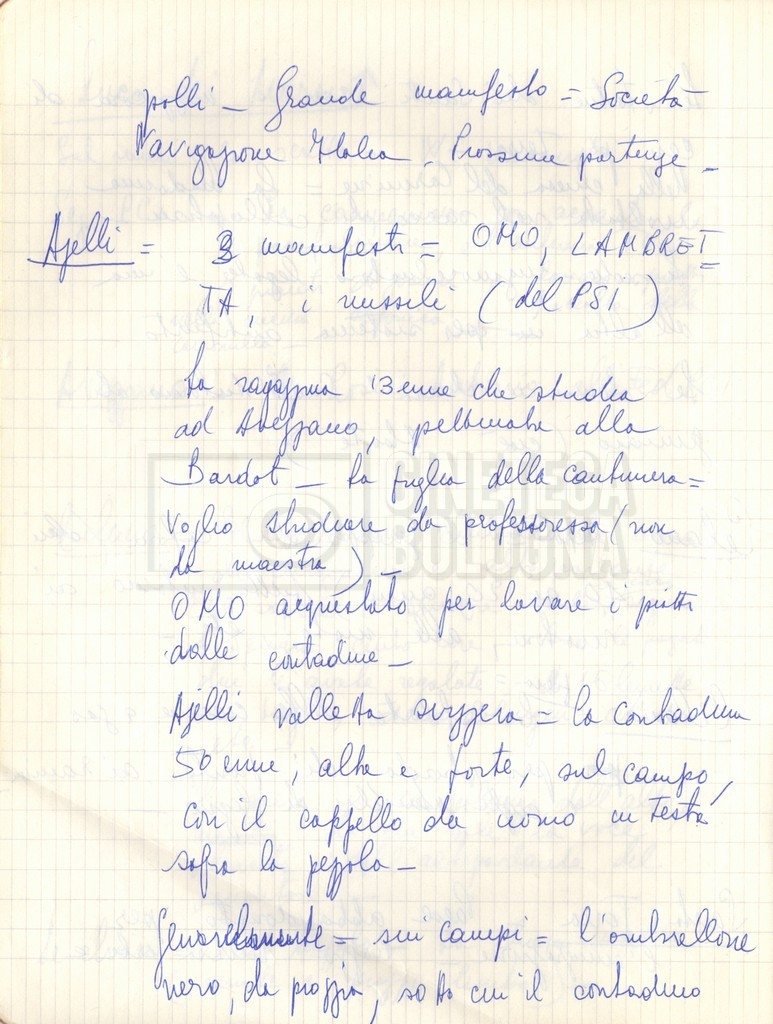 polli - Grande manifesto = Società
Navigazione Italia - Prossime partenze -
Ajelli = 3 manifesti = OMO, LAMBRET
TA, i missili (del PSI)
La ragazzina 13enne che studia
ad Avezzano, pettinata alla
Bardot - La figlia della cantiniera =
CINETECA
BOLOGNA
Voglio studiare da professoressa (non
da maestra) -
OMO acquistato per lavare i piatti
dalle contadine -
Ajelli valletta svizzera = la contadina
50enne, alta e forte, sul campo,
con il cappello da uomo in testa
sopra la pezzola -
Generalmente = sui campi = l'ombrellone
nero, da pioggia, sotto cui il contadino